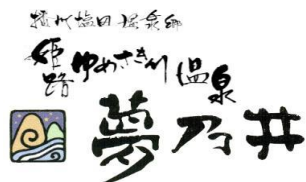 播州塩田温泉郷
姫路ゆめさき川温泉
夢乃井